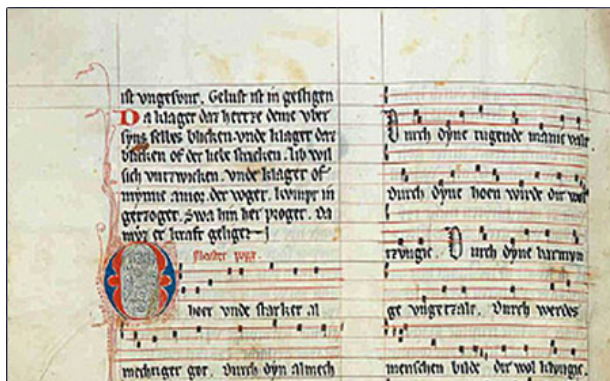 ist vngesunt. Gelust ist in gestigen
Da klaget daz hertze deme vber
syns selbes blicken vnde klaget daz
blicken of der liebe stricken. Ich wil
sich vurzwicken. vnde klaget of
mynne amor. der voget. kvmpt in
getzoget. Swa hin her proget. Da
myz er kraft geliget
Meister
O hoer vnde starker al
mechtiger got. Durch dyn almech
Durch dyne tugende manic valt
Durch dyne hoen wirde die wol
tzvngic. Durch dyne barmyn
ge vngetzalt. Durch werdes
menschen bilde die wol